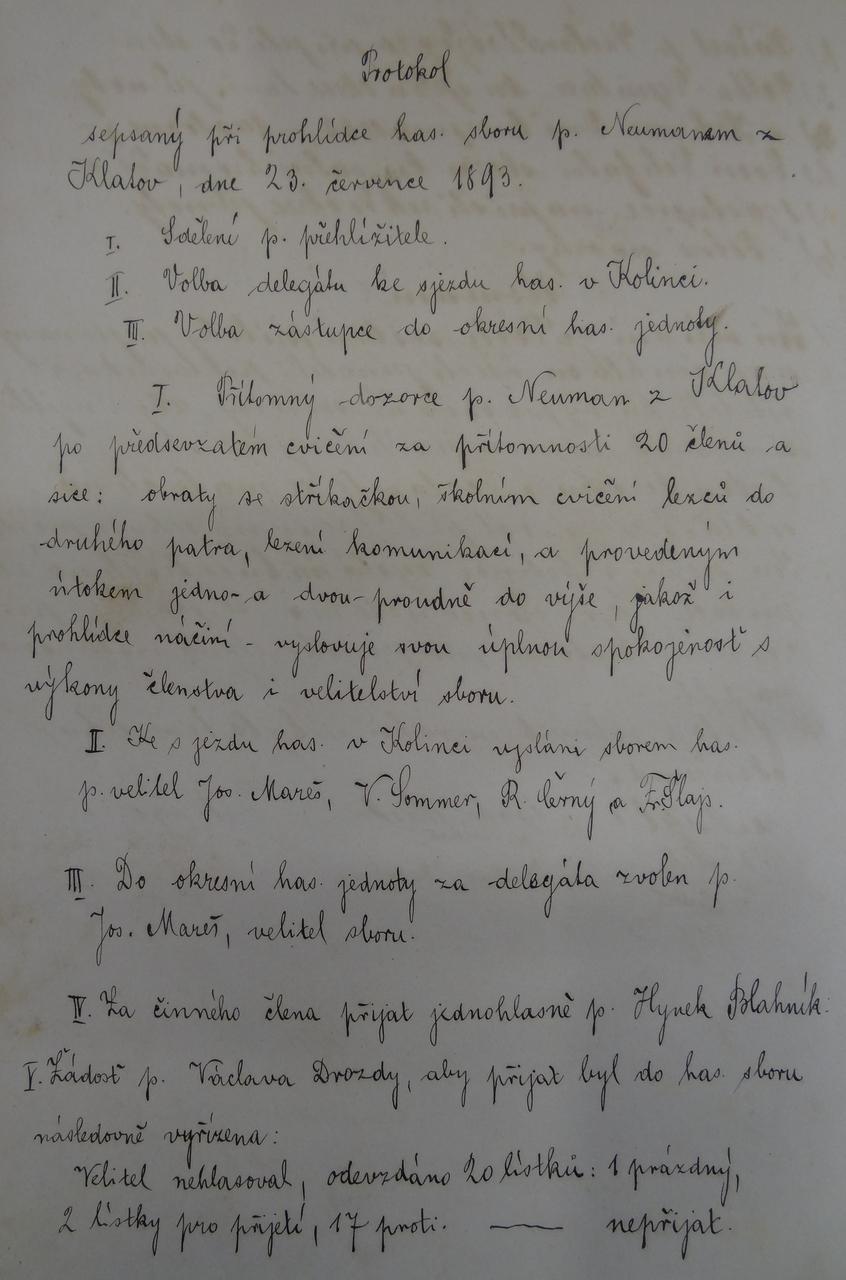 Protokol
sepsaný při prohlídce has. sboru p. Neumanem z
Klatov, dne 23. července 1893.
I. Sdělení p. přehlížitele.
II. Volba delegátu ke sjezdu has. v Kolinci.
III. Volba zástupce do okresní has. jednoty.
I. Přítomný dozorce p. Neuman z Klatov
po předsevzatém cvičení za přítomnosti 20 členů a
sice: obraty se stříkačkou, školním cvičení lezců do
druhého patra, lezení komunikací, a provedeným
útokem jedno- a dvou- proudně do výše, jakož i
prohlídce náčiní - vyslovuje svou úplnou spokojenosť s
výkony členstva i velitelství sboru.
II. Ke sjezdu has. v Kolinci vysláni sborem has.
p. velitel Jos. Mareš, V. Sommer, R. Černý a Fr. Šlajs.
III. Do okresní has. jednoty za delegáta zvolen p.
Jos. Mareš, velitel sboru.
IV. Za činného člena přijat jednohlasně p. Hynek Blahník.
V. Žádosť p. Václava Drozdy, aby přijat byl do has. sboru
následovně vyřízena:
Velitel nehlasoval, odevzdáno 20 lístků: 1 prázdný,
2 lístky pro přijetí, 17 proti. — nepřijat.